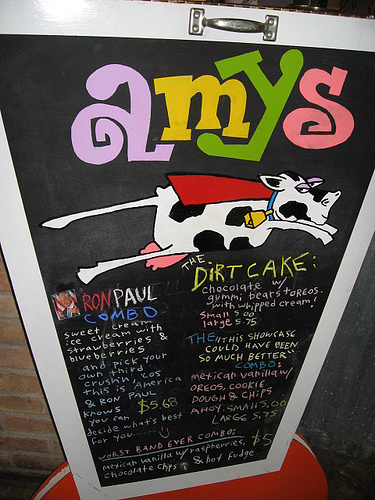 amys
THE
DIRT CAKE:
chocolate w/
gummi bears + OREOS.
with whipped cream!
Small 5.00
large 5.75
RON PAUL
COMBO
sweet cream
ice cream with
strawberries &
blueberries
and pick your
own third
crushin' cos
this is America
& RON PAUL
knows $5.68
you can
decide what's best
for you...
THE "THIS SHOWCASE
COULD HAVE BEEN
SO MUCH BETTER"
COMBO:
mexican vanilla w/
OREOS, COOKIE
DOUGH & CHIPS
AHOY. SMALL 5.00
LARGE 5.75
WORST BAND EVER COMBO: $5
mexican vanilla w/ raspberries,
chocolate chips & hot fudge